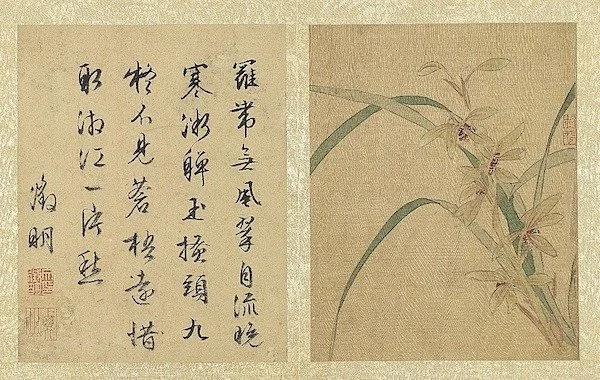 羅帶無風翠自流晚
寒微嚲玉搔頭九
疑不見蒼梧遠惜
取湘江一片愁
徵明